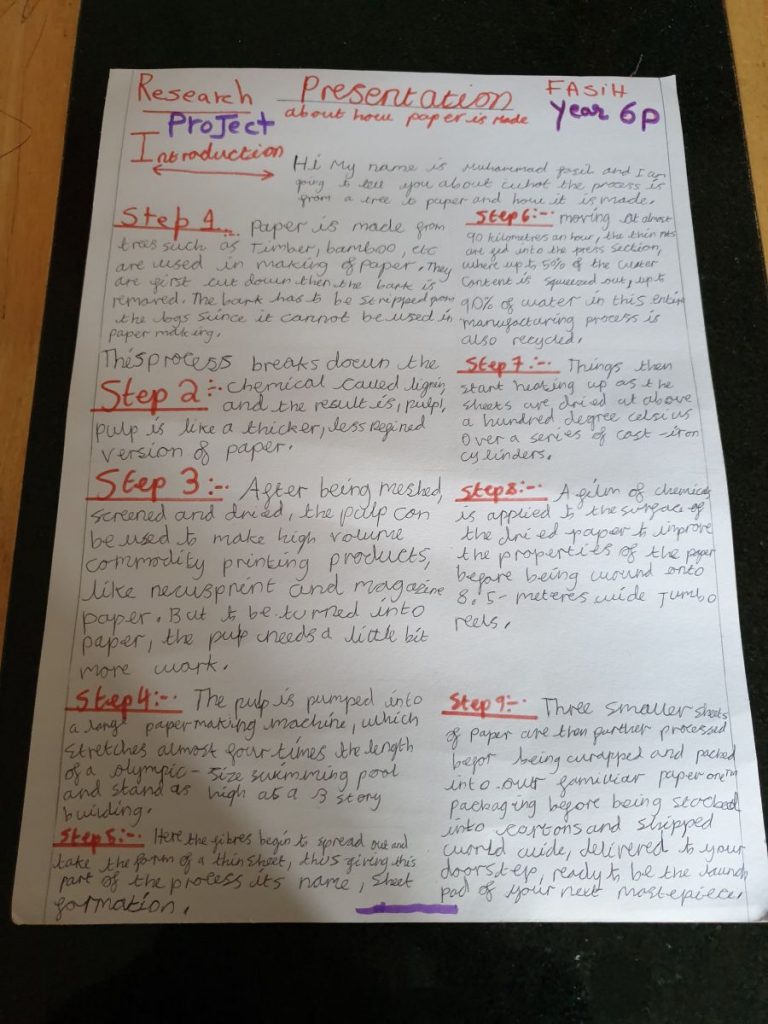 Research Presentation FASIH
Project about how paper is made Year 6P
Introduction
Hi My name is Muhammad fasih and I am
going to tell you about what the process is
from a tree to paper and how it is made.
Step 1:-. Paper is made from
trees such as Timber, bamboo, etc
are used in making of paper. They
are first cut down then the bark is
removed. The bark has to be stripped from
the logs since it cannot be used in
paper making.
This process breaks down the
Step 2:-. chemical called lignin,
and the result is, pulp,
pulp is like a thicker, less refined
version of paper.
Step 3:-. After being meshed,
screened and dried, the pulp can
be used to make high volume
commodity printing products,
like newsprint and magazine
paper. But to be turned into
paper, the pulp needs a little bit
more work.
Step4:-. The pulp is pumped into
a large paper making machine, which
stretches almost four times the length
of a olympic-size swimming pool
and stand as high as a 3 story
building.
Step 5:-. Here the fibres begin to spread out and
take the form of a thin sheet, thus giving this
part of the process its name, Sheet
formation.
Step 6:-. moving at almost
90 kilometres an hour, the thin
are fed into the press section,
where up to 50% of the water
content is squeezed out, up to
90% of water in this entire
manufacturing process is
also recycled.
Step 7:-. Things then
start heating up as the
sheets are dried at above
a hundred degree celsius
over a series of cast-iron
cylinders.
Step8:-. A film of chemicals
is applied to the surface of
the dried paper to improve
the properties of the paper
before being wound onto
8.5-meteres wide Jumbo
reels.
Step 9:-. Three smaller sheets
of paper are then further processed
befor being wrapped and packed
into our familiar paper one™
packaging before being stocked
into cartons and shipped
world wide, delivered to your
doorstep, ready to be the launch
pad of your next masterpiece.